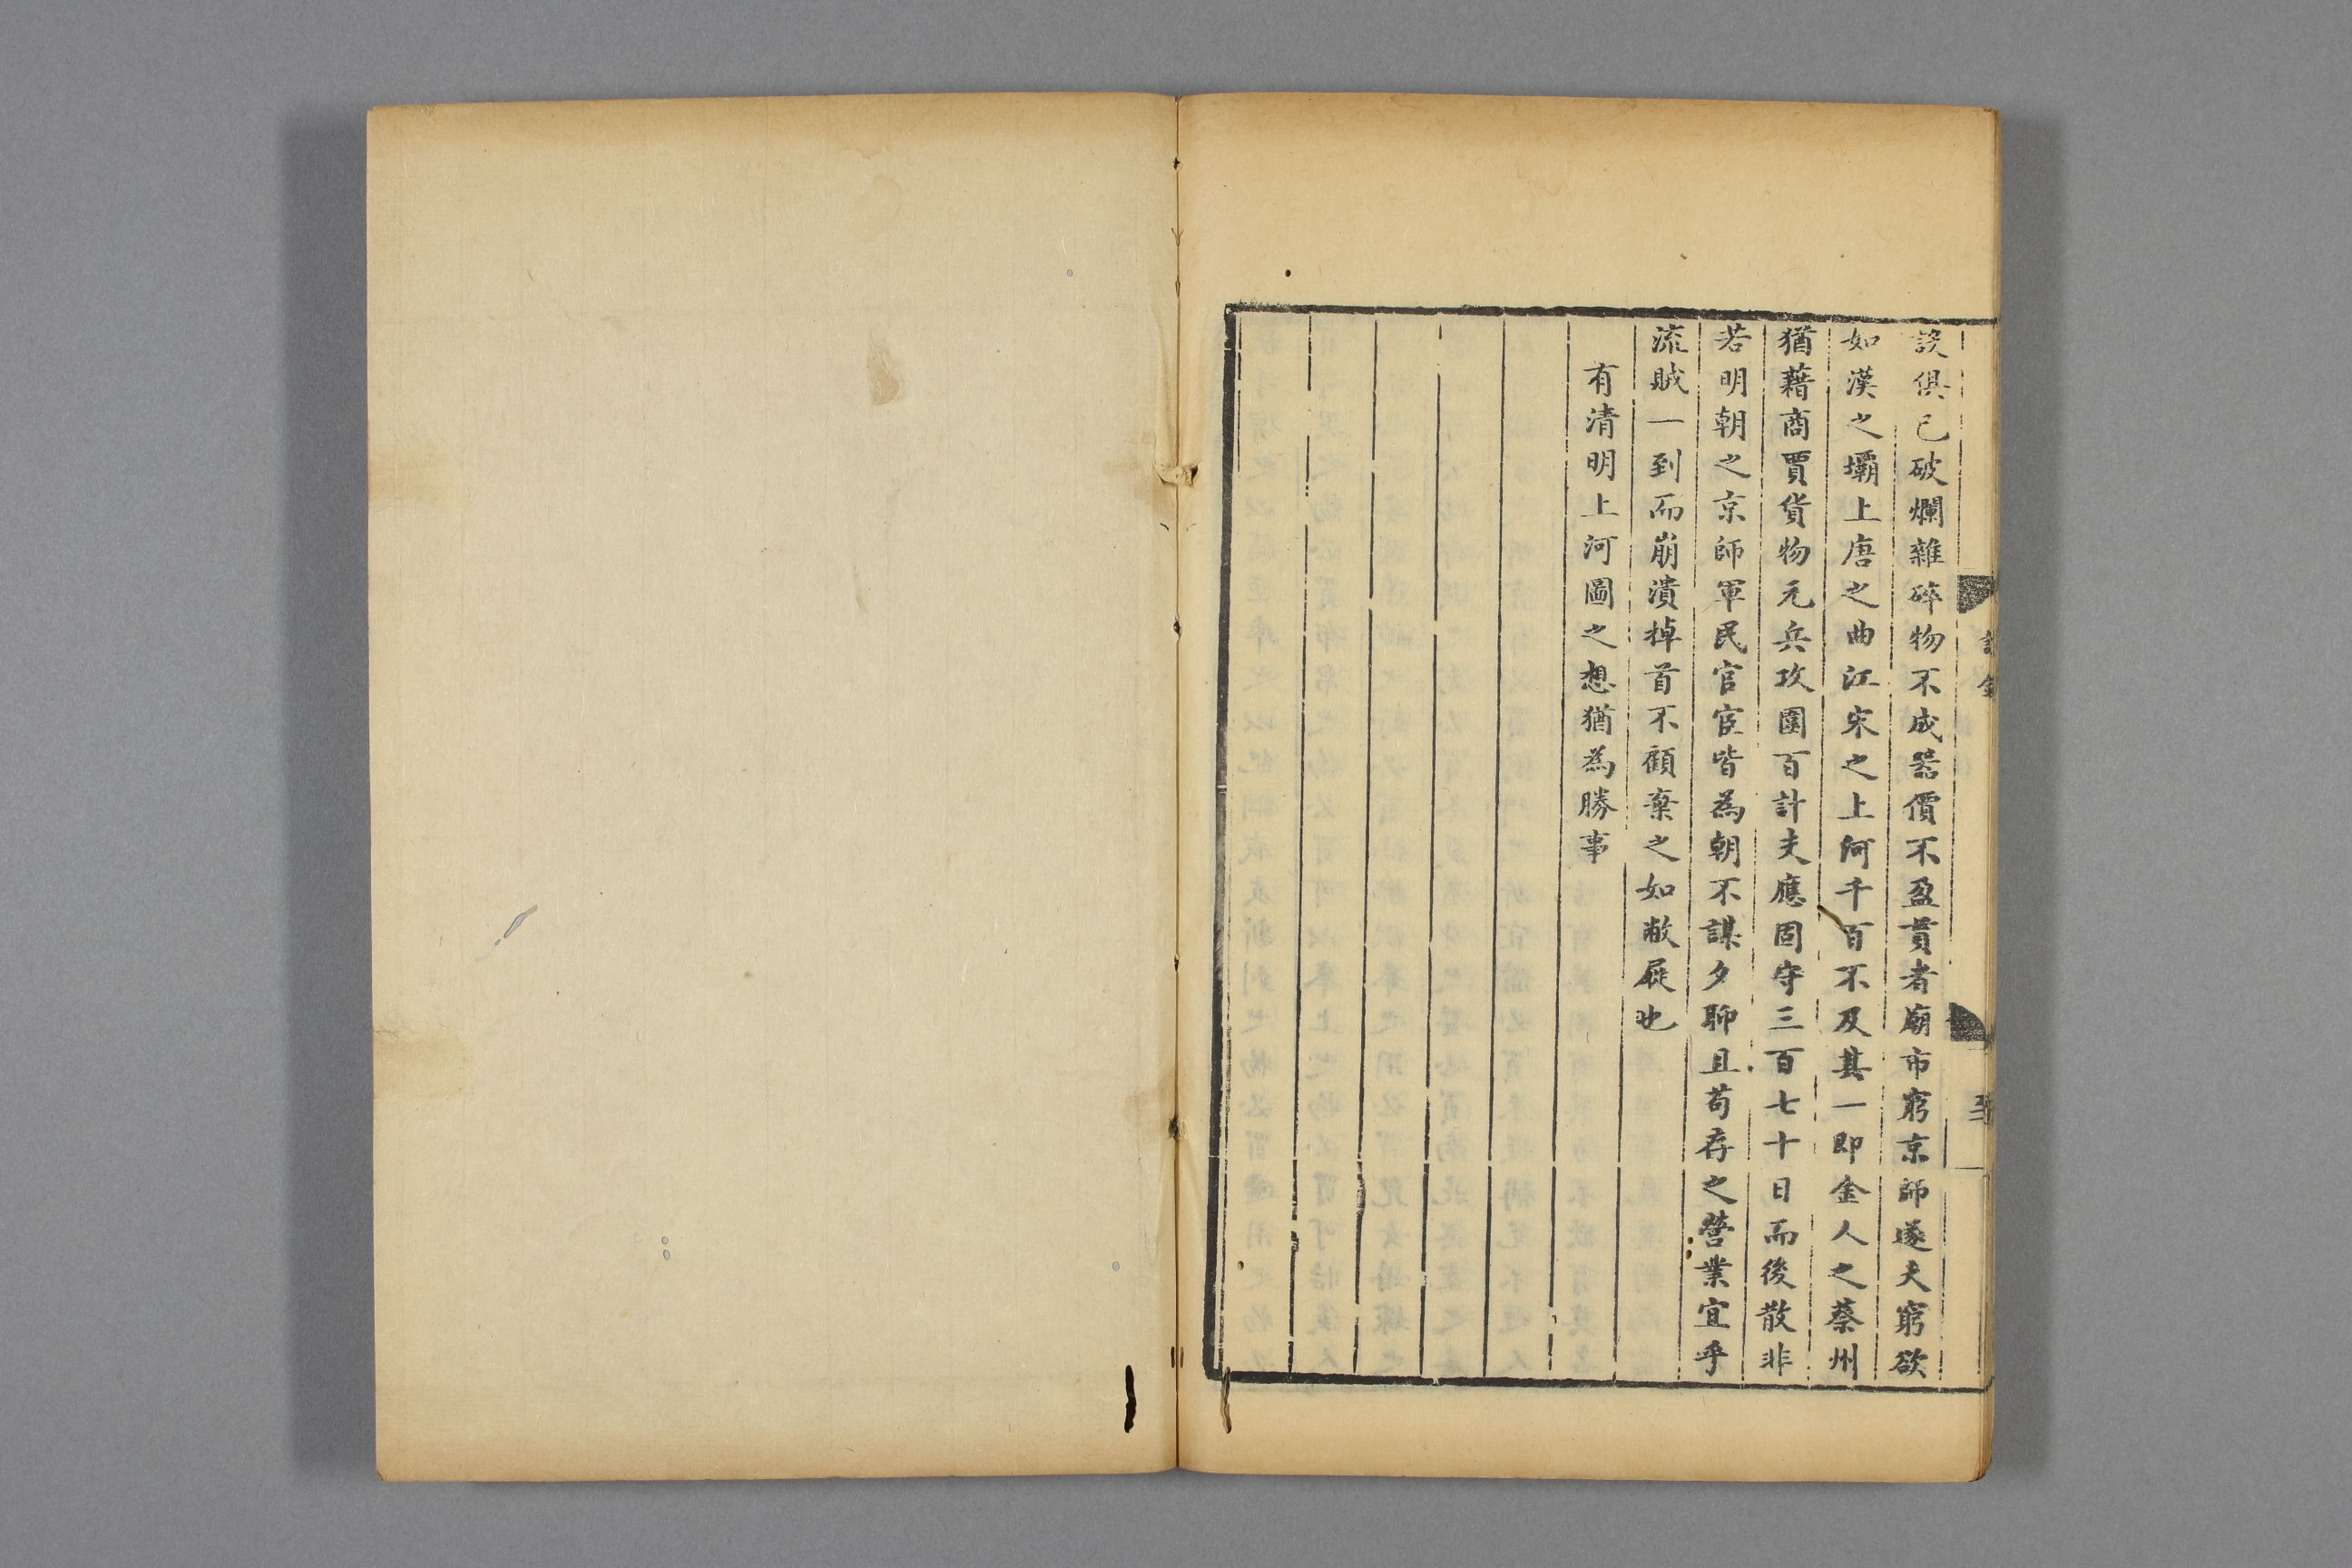 設俱已破爛雜碎物不成器價不盈貫者廟市窮京師遂大窮欲
如漢之壩上唐之曲江宋之上河千百不及其一即金人之蔡州
猶藉商賈貨物元兵攻圍百計夫應固守三百七十日而後散非
若明朝之京師軍民官宦皆為朝不謀夕聊且苟存之營業宜乎
流賊一到而崩潰掉首不顧棄之如敝屣也
有清明上河圖之想猶為勝事